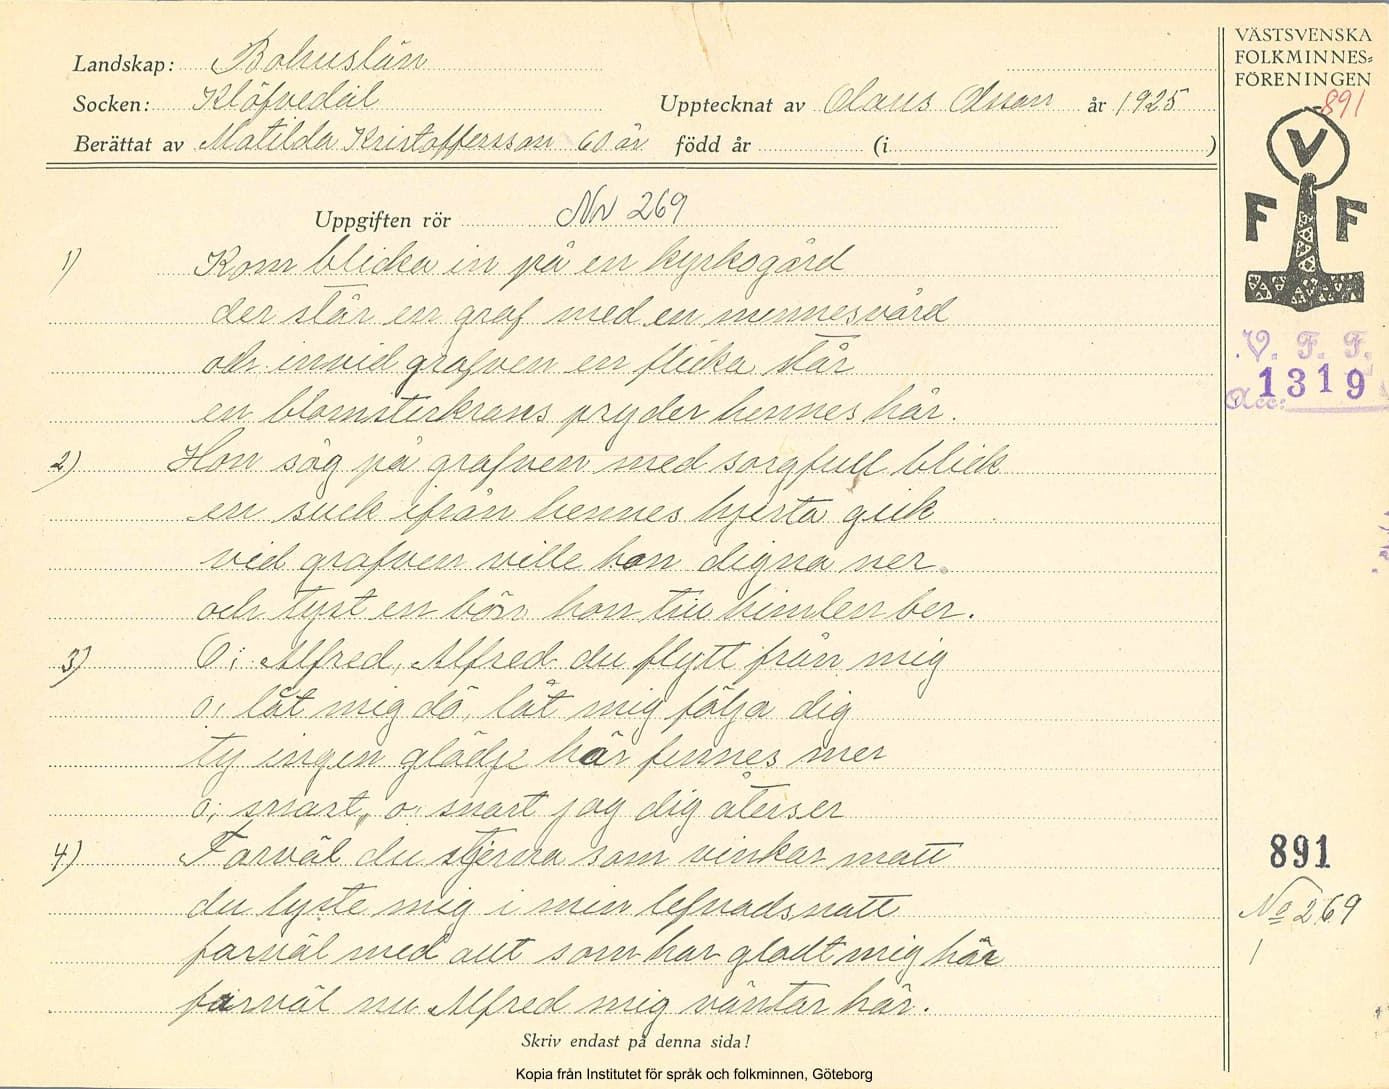 Landskap: Bohuslän
Socken: Klöfvedal
Upptecknat av Olaus Olsson år 1925
Berättat av Matilda Kristoffersson 60 år född år (i )
VÄSTSVENSKA
FOLKMINNES=
FÖRENINGEN
891
V
F F
V. F. F.
Acc: 1319
Uppgiften rör Nr 269
1) Kom blicka in på en kyrkogård
der står en graf med en minnesvård
och invid grafven en flicka står
en blomsterkrans pryder hennes hår.
2) Hon såg på grafven med sorgfull blick
en suck ifrån hennes hjerta gick
vid grafven ville hon digna ner
och tyst en bön hon till himlen ber.
3) O; Alfred, Alfred du flytt från mig
o, låt mig dö, låt mig följa dig
ty ingen glädje här finnes mer
o; snart, o, snart jag dig återser
4) Farväl du stjerna som vinkar matt
du lyste mig i min lefnadsnatt
farväl med allt som har gladt mig här
farväl nu Alfred mig väntar här.
891
No 269
1
Skriv endast på denna sida!
Kopia från Institutet för språk och folkminnen, Göteborg